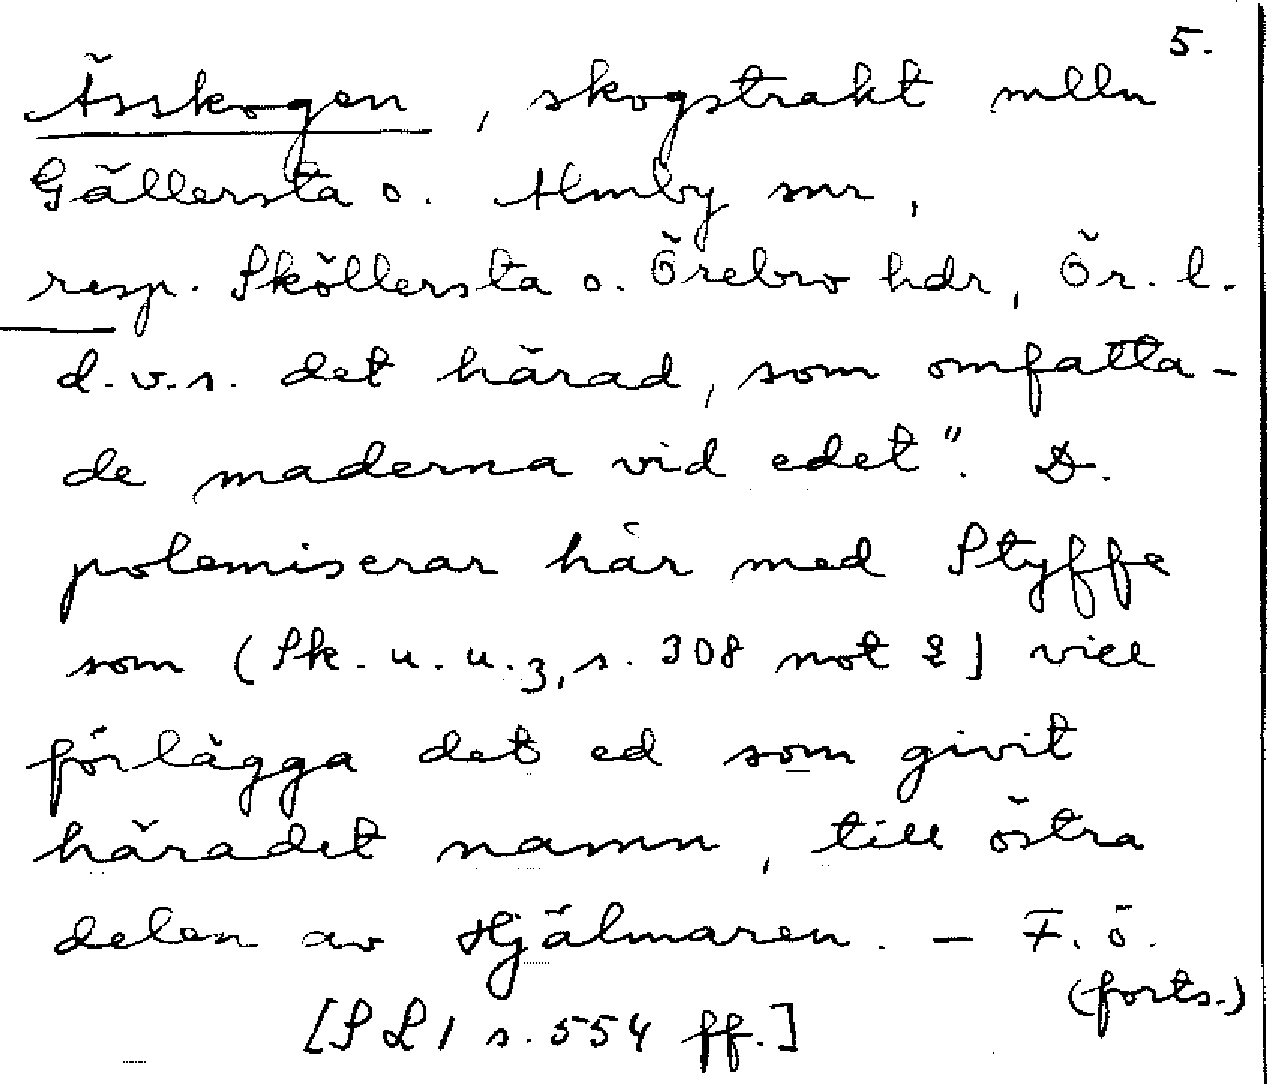 5.
Ässkogen, skogstrakt mlln
Gällersta o. Almby snr,
resp. Sköllersta o. Örebro hdr, Ör. l.
d.v.s. det härad, som omfatta-
de maderna vid edet". D.
polemiserar här med Styffe
som (Sk. u. u. 3, s. 308 not 2) vill
förlägga det ed som givit
häradet namn, till östra
delen av Hjälmaren. — F. ö.
(forts.)
[SL1 s. 554 ff.]